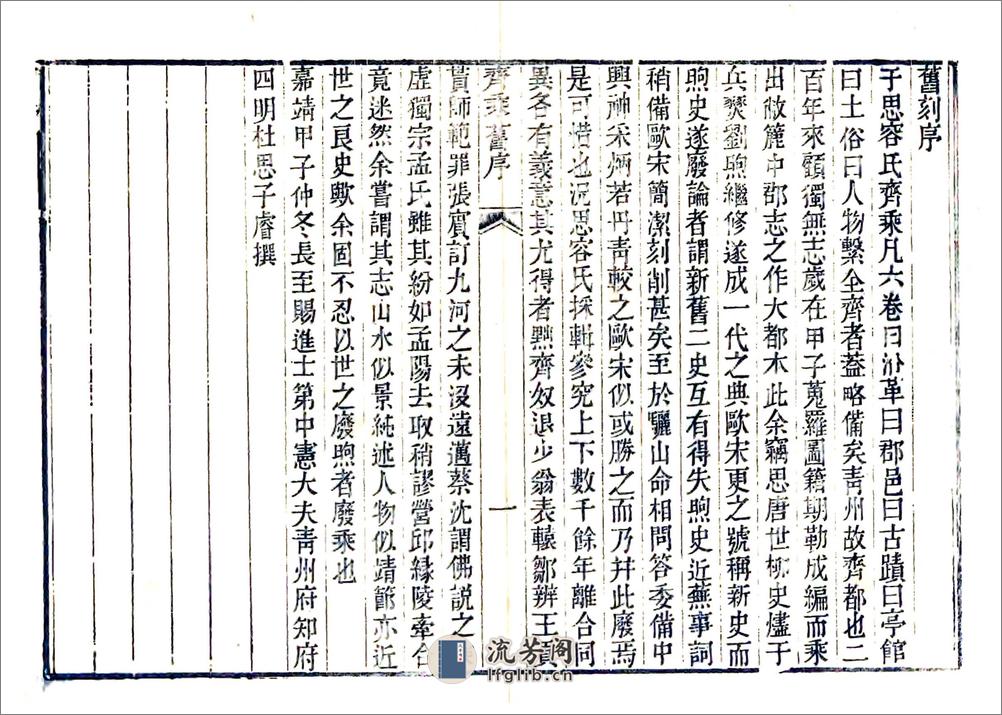 舊刻序
于思容氏齊乘凡六卷曰沿革曰郡邑曰古蹟曰亭館
曰土俗曰人物繫全齊者葢略備矣靑州故齊都也二
百年來顧獨無志歲在甲子蒐羅圖籍期勒成編而乘
出敝簏中郡志之作大都本此余竊思唐世柳史燼于
兵燹劉煦繼修遂成一代之典歐宋更之號稱新史而
煦史遂廢論者謂新舊二史互有得失煦史近蕪事詞
稍備歐宋簡潔刻削甚矣至於驪山命相問答委備中
興神采炳若丹靑較之歐宋似或勝之而乃幷此廢焉
是可惜也況思容氏採輯參究上下數千餘年離合同
異各有義意其尤得者黜齊奴退少翁表轅鄒辨王
齊乘舊序
一
賁師範罪張賓訂九河之未沒遠邁蔡沈謂佛說之
虛獨宗孟氏雖其紛如孟陽去取稍謬營邱緣陵牽合
竟迷然余嘗謂其志山水似景純述人物似靖節亦近
世之良史歟余固不忍以世之廢煦者廢乘也
嘉靖甲子仲冬長至賜進士第中憲大夫靑州府知府
四明杜思子睿撰
流芳阁
lfglib.cn